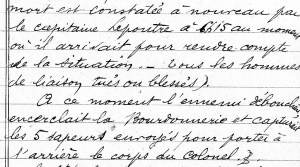 mort est constatée à nouveau par
le capitaine Lepoutre à 6h15 au moment
où il arrivait pour rendre compte
de la situation. _ Tous les hommes
de liaison tués ou blessés).
A ce moment l'ennemi débouche
encerclait la Bourdonnerie et capturait
les 5 sapeurs envoyés pour porter à
l'arrière le corps du Colonel